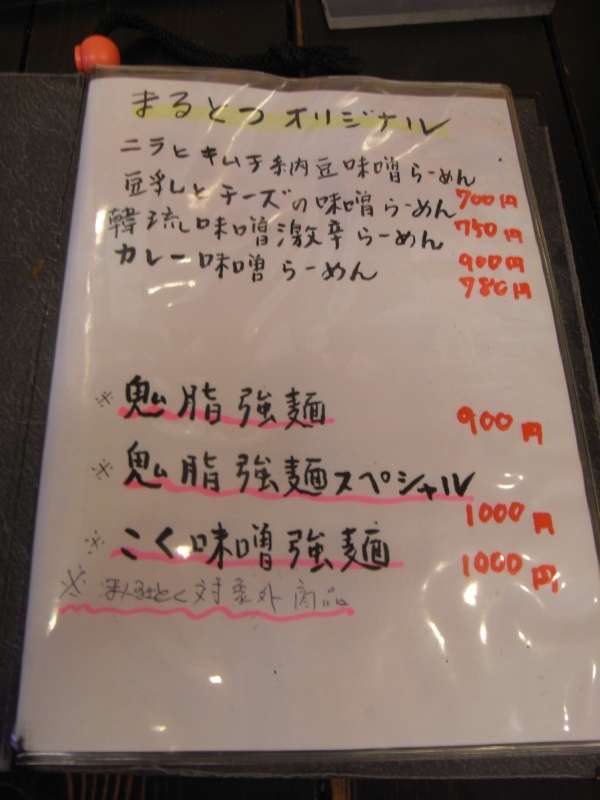 まるとつ オリジナル
ニラとキムチ納豆味噌らーめん 700円
豆乳とチーズの味噌らーめん 750円
韓琉味噌激辛らーめん 900円
カレー味噌らーめん 780円
※ 鬼脂強麺 900円
※ 鬼脂強麺スペシャル 1000円
※ こく味噌強麺 1000円
※ まるとく対象外商品